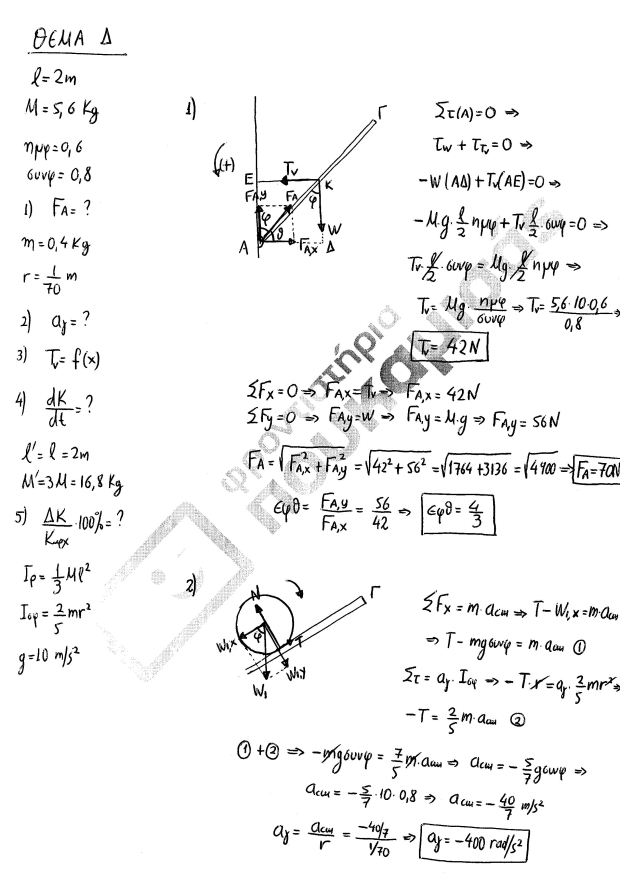 ΘΕΜΑ Δ
l=2m
M=5,6 Kg
ημφ=0,6
συνφ=0,8
1) F_A=?
m=0,4 Kg
r=1/70 m
2) a_γ=?
3) T_ν=f(x)
4) dK/dt=?
l'=l=2m
M'=3M=16,8 Kg
5) ΔK/K_αρχ·100%=?
I_ρ=1/3 Ml²
I_σφ=2/5 mr²
g=10 m/s²
1)
Γ
(+)
E
T_ν
K
F_A,y
F_A
φ
φ
W
A
θ
F_A,x
Δ
Στ(A)=0 ⇒
τ_W+τ_Tν=0 ⇒
-W(AΔ)+T_ν(AE)=0 ⇒
-M·g·l/2 ημφ+T_ν·l/2·συνφ=0 ⇒
T_ν·l/2·συνφ=Mg·l/2 ημφ ⇒
T_ν=Mg·ημφ/συνφ ⇒ T_ν=5,6·10·0,6/0,8 ⇒
T_ν=42N
ΣF_x=0 ⇒ F_A,x=T_ν ⇒ F_A,x=42N
ΣF_y=0 ⇒ F_A,y=W ⇒ F_A,y=M·g ⇒ F_A,y=56N
F_A=√(F_A,x²+F_A,y²)=√(42²+56²)=√(1764+3136)=√4900 ⇒ F_A=70N
εφθ=F_A,y/F_A,x=56/42 ⇒ εφθ=4/3
2)
N
Γ
φ
W_1,x
T
W_1
W_1,y
ΣF_x=m·a_cm ⇒ T-W_1,x=m·a_cm
⇒ T-mgσυνφ=m·a_cm ①
Στ=a_γ·I_σφ ⇒ -T·r=a_γ·2/5 mr² ⇒
-T=2/5 m·a_cm ②
①+② ⇒ -mgσυνφ=7/5 m·a_cm ⇒ a_cm=-5/7 gσυνφ ⇒
a_cm=-5/7·10·0,8 ⇒ a_cm=-40/7 m/s²
a_γ=a_cm/r=-40/7/1/70 ⇒ a_γ=-400 rad/s²
φροντιστήρια
πουκαμισάς